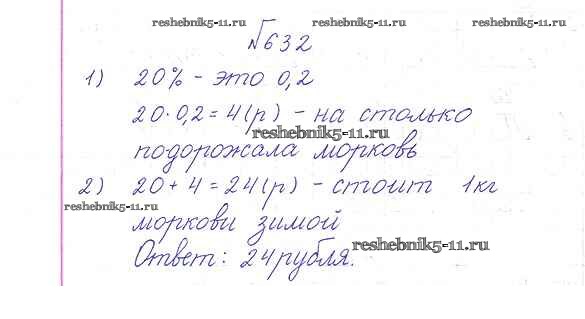 reshebnik5-11.ru reshebnik5-11.ru reshebnik5-11.ru
№632
1) 20% - это 0,2
20·0,2=4(р) - на столько
reshebnik5-11.ru
подорожала морковь
2) 20+4=24(р) - стоит 1кг
reshebnik5-11.ru
моркови зимой
Ответ: 24 рубля.
reshebnik5-11.ru